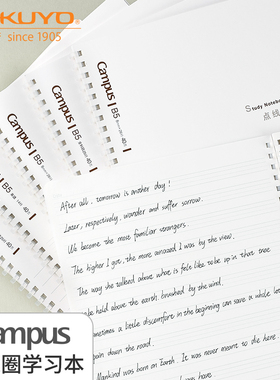 KUYO
since 1905
Campus B5
Campus B5
Campus B5
Study Noteboo
点线
After all, tomorrow is another day!
Later, respectively, wander and suffer sorrow.
We become the most familiar strangers.
The higher I got, the more amazed I was by the view.
The way she talked about what is feels like to be up in that tree
held above the earth, brushed by the wind.
Sometimes a little discomfort in the beginning can save a whole lo
pain down the road.
Mankind was born on Earth. It was never meant to die here.
ampus
圈学习本